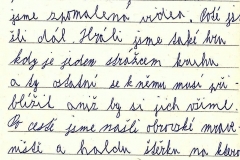 jsme zpomalená videa. Poté js
šli dál. Hráli jsme také hru
kdy je jeden strážcem kruhu
a ty ostatní se k němu musí při
blížit aniž by si jich všiml.
Po cestě jsme našli obrovské mrave
niště a haldu štěrku na které